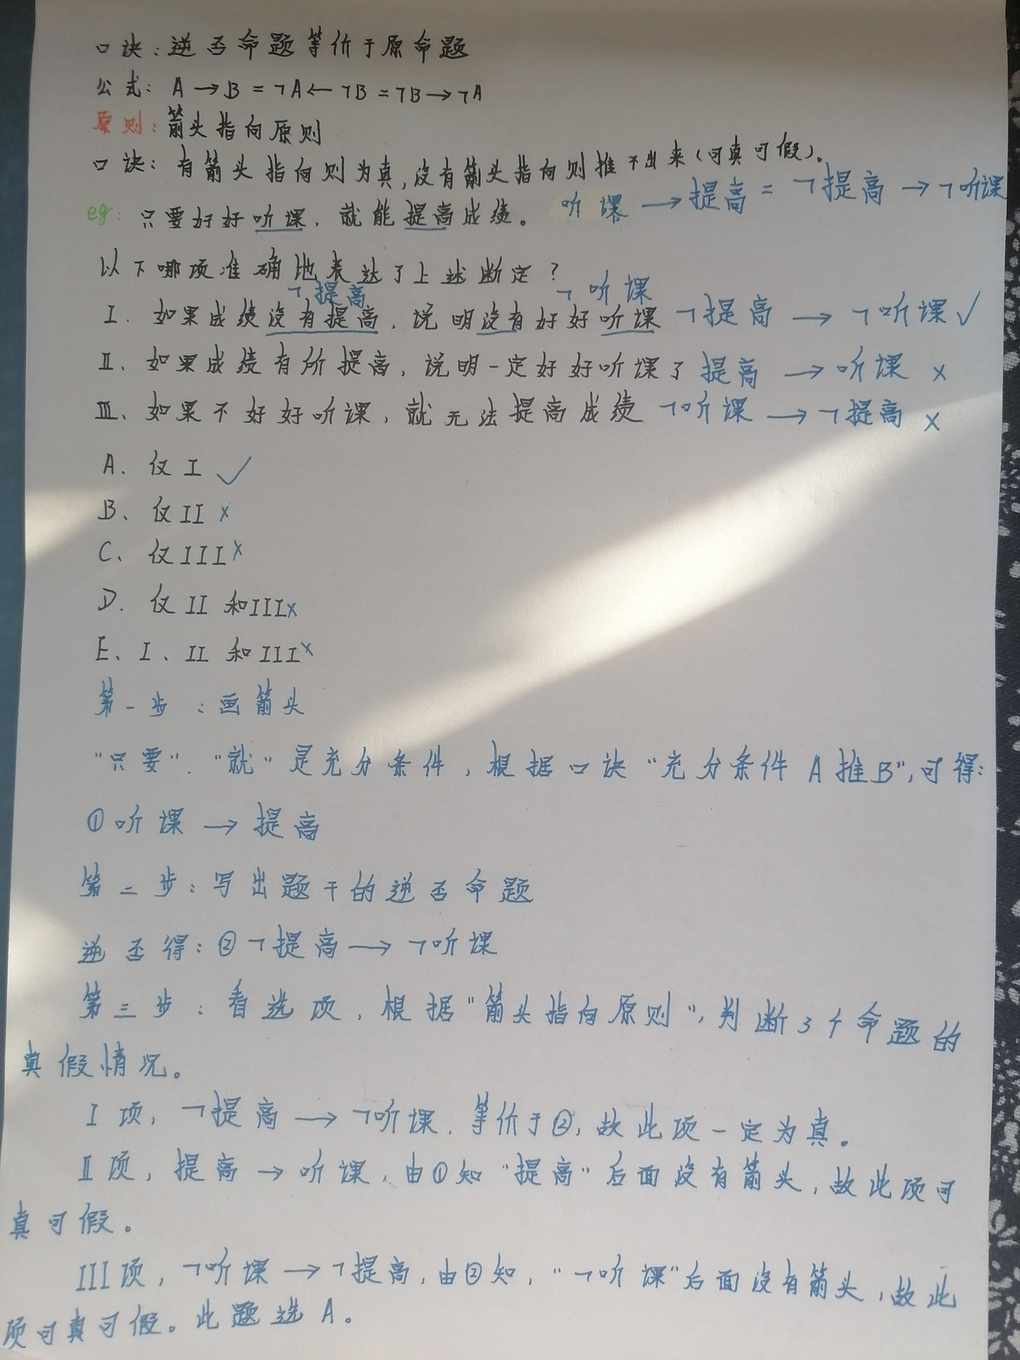 口诀:逆否命题等价于原命题
公式: A→B=¬A←¬B=¬B→¬A
原则:箭头指向原则
口诀:有箭头指向则为真,没有箭头指向则推不出来(可真可假)。
eg:只要好好听课,就能提高成绩。 听课→提高=¬提高→¬听课
以下哪项准确地表达了上述断定?
¬提高 ¬听课
I.如果成绩没有提高,说明没有好好听课 ¬提高→¬听课✓
II、如果成绩有所提高,说明一定好好听课了 提高→听课 x
III、如果不好好听课,就无法提高成绩 ¬听课→¬提高 x
A.仅I ✓
B、仅II x
C、仅III x
D.仅II和III x
E、I、II和III x
第一步:画箭头
"只要"."就"是充分条件,根据口诀"充分条件A推B",可得:
①听课→提高
第二步:写出题干的逆否命题
逆否得:②¬提高→¬听课
第三步:看选项,根据"箭头指向原则",判断3个命题的
真假情况。
I项,¬提高→¬听课.等价于②,故此项一定为真。
II项,提高→听课,由①知"提高"后面没有箭头,故此项可
真可假。
III项,¬听课→¬提高,由②知,"¬听课"后面没有箭头,故此
项可真可假。此题选A。